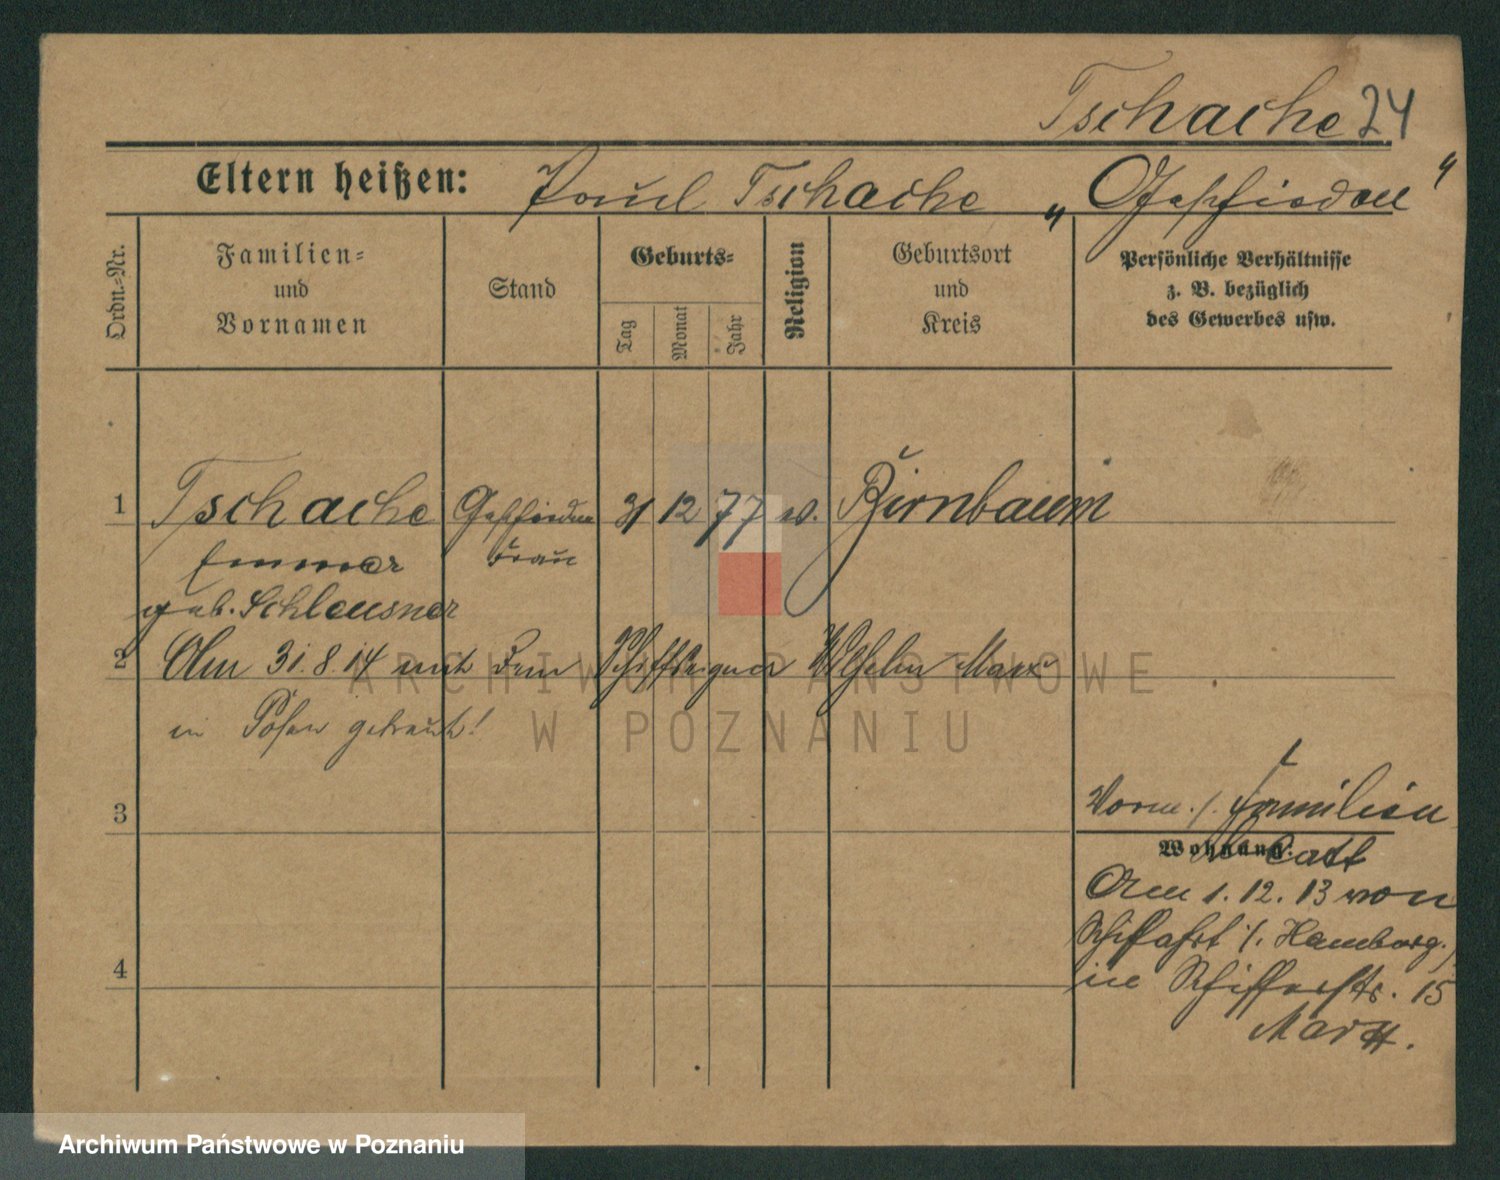 Tschache 24
Eltern heißen: Paul Tschache „Geschieden"
Ordn.-Nr.
Familien-
und
Vornamen
Stand
Geburts-
Tag
Monat
Jahr
Religion
Geburtsort
und
Kreis
Persönliche Verhältnisse
z. B. bezüglich
des Gewerbes usw.
1 Tschache Geschiedene 31 12 77 ev. Birnbaum
Emma Frau
geb. Schleusner
2 Am 31.8.14 mit dem Schiffseigner Wilhelm Marx
in Posen getraut!
3
Vorm. /. Familien
Blatt
Wohnung:
Am 1.12.13 von
Schiffahrt /. Hamburg.
4
in Schifferstr. 15
Marx.
ARCHIWUM PAŃSTWOWE
W POZNANIU
Archiwum Państwowe w Poznaniu